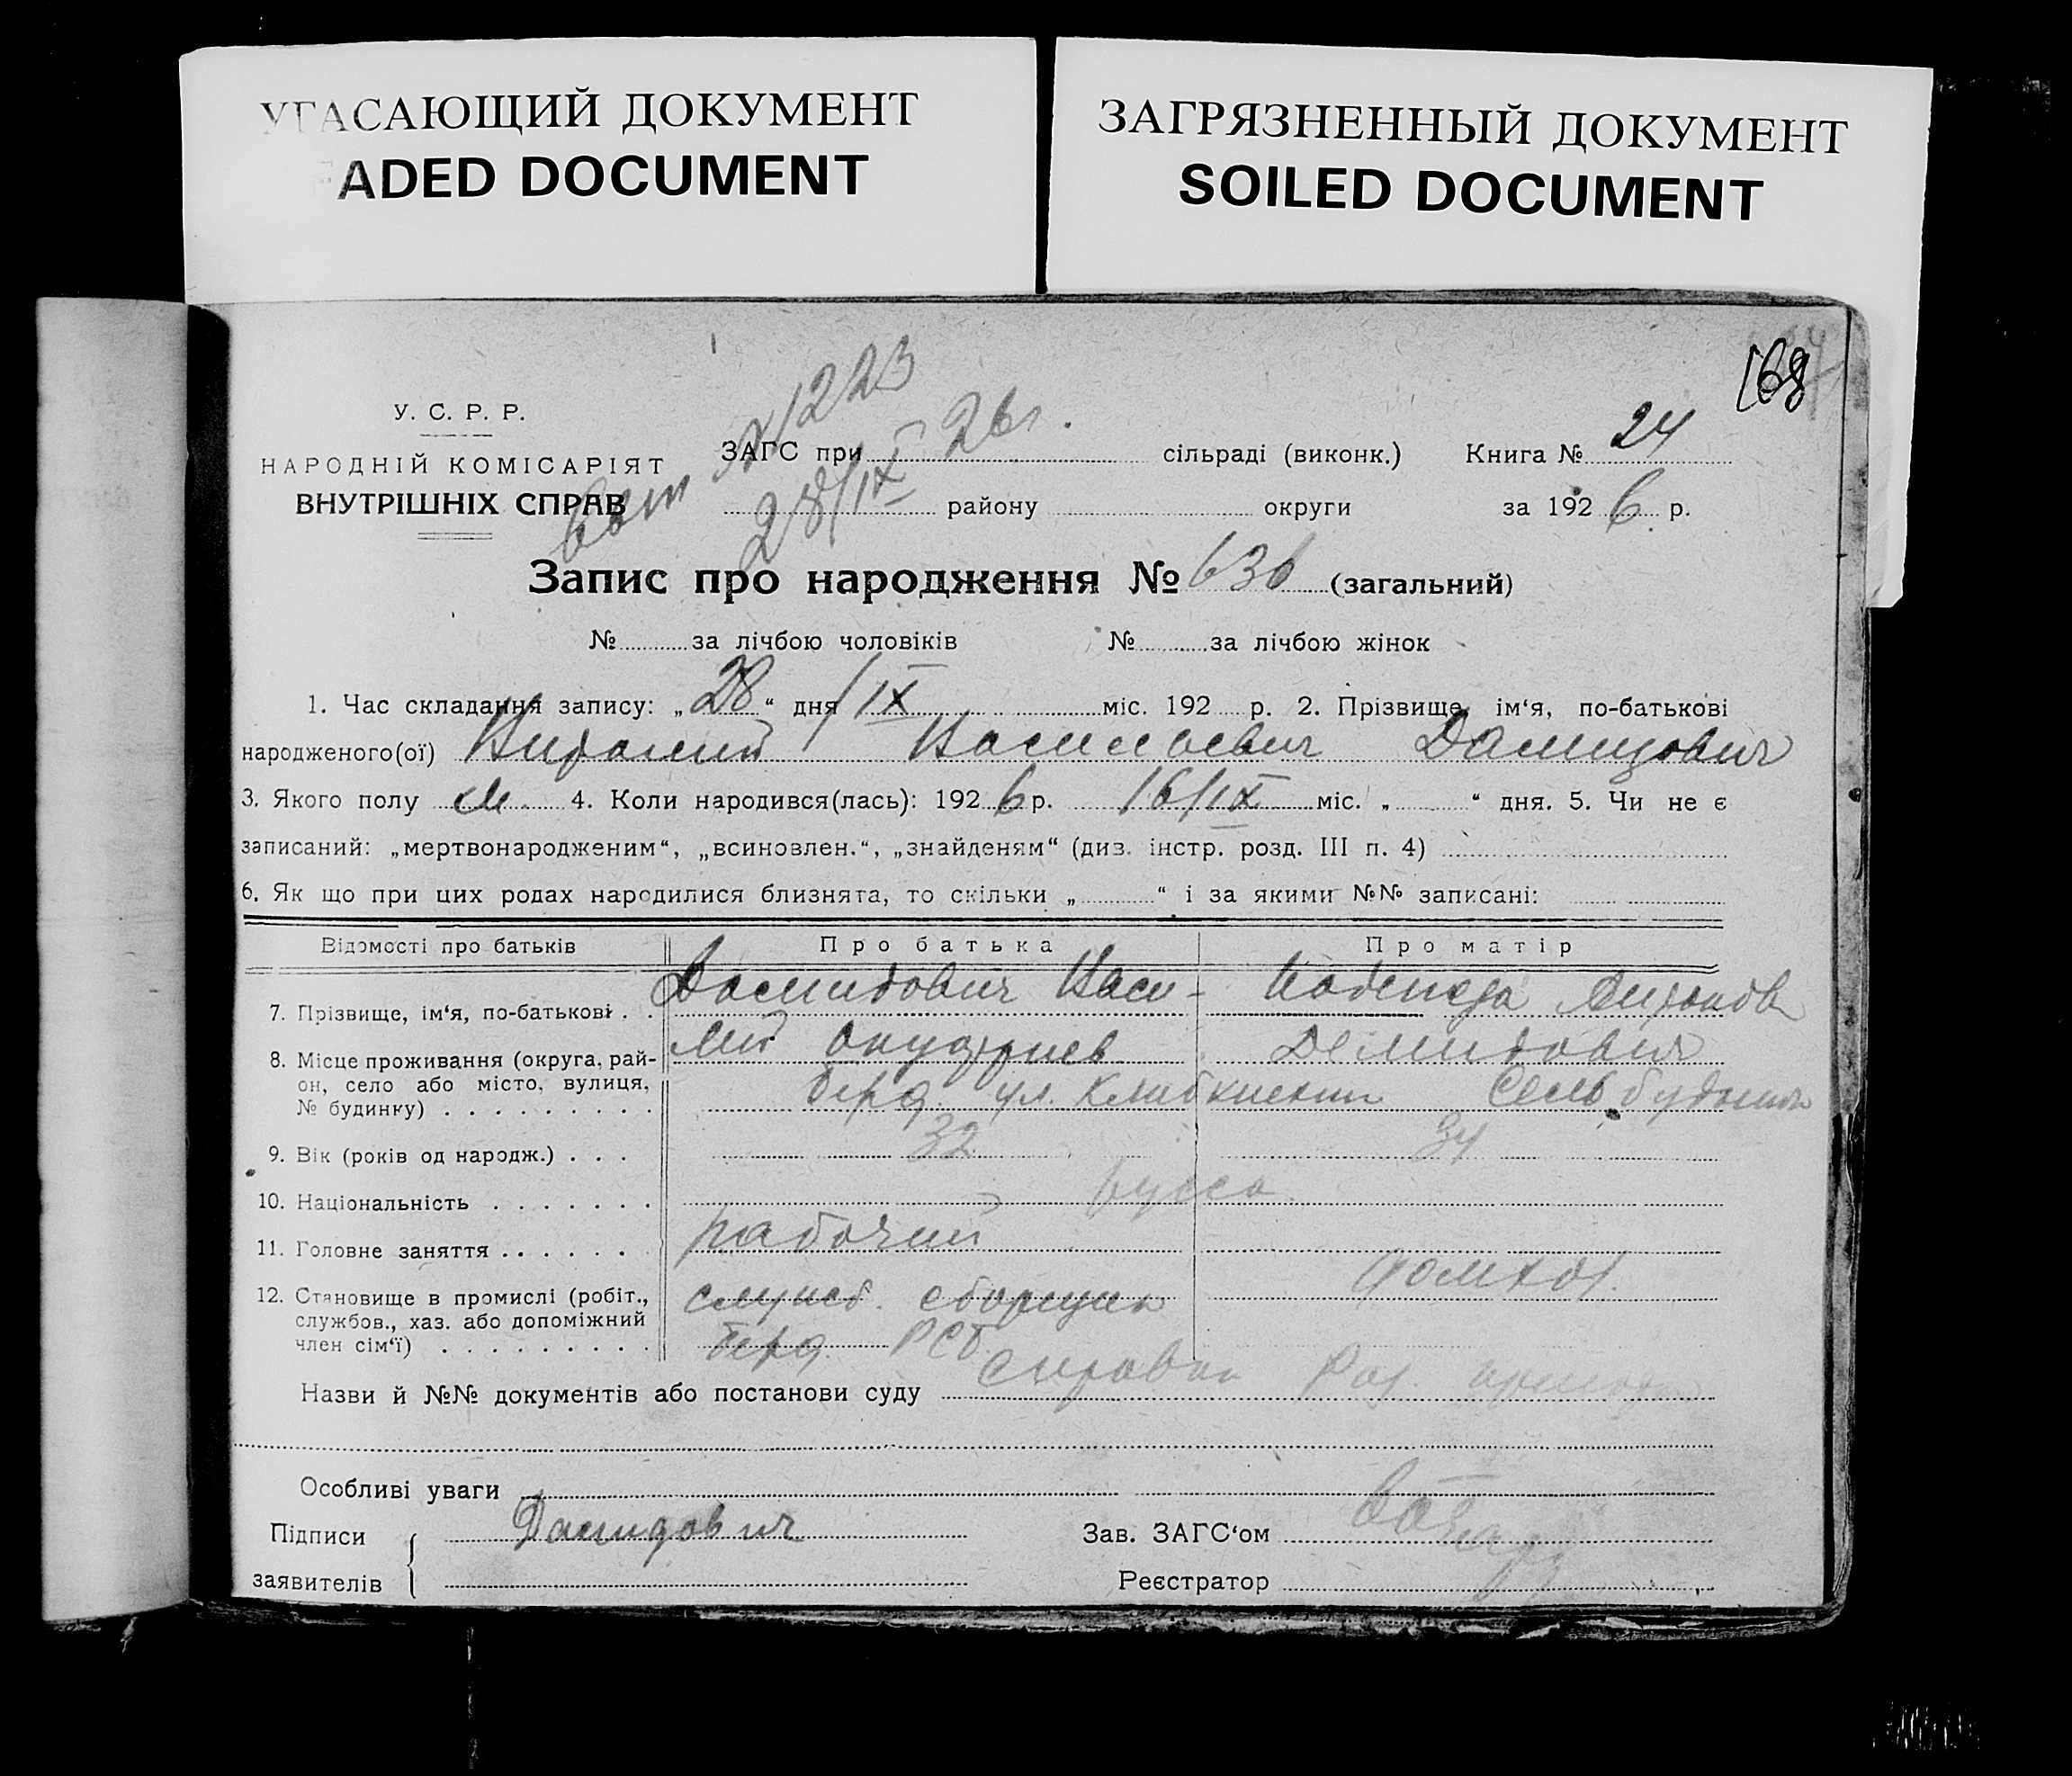 УГАСАЮЩИЙ ДОКУМЕНТ
ADED DOCUMENT
ЗАГРЯЗНЕННЫЙ ДОКУМЕНТ
SOILED DOCUMENT
168
У. С. Р. Р.
НАРОДНІЙ КОМІСАРІЯТ
ВНУТРІШНІХ СПРАВ
№ 1223
28/IX 26г.
ЗАГС при сільраді (виконк.) Книга № 24
району округи за 1926 р.
Запис про народження № 636 (загальний)
№ за лічбою чоловіків № за лічбою жінок
1. Час складання запису: „28“ дня /IX міс. 192 р. 2. Прізвище, ім‘я, по-батькові
народженого(ої) Виталий Васильевич
3. Якого полу м. 4. Коли народився(лась): 1926 р. 16/IX міс. „ “ дня. 5. Чи не є
записаний: „мертвонародженим“, „всиновлен.“, „знайденям“ (див. інстр. розд. III п. 4)
6. Як що при цих родах народилися близнята, то скільки „ “ і за якими №№ записані:
Відомості про батьків Про батька Про матір
7. Прізвище, ім‘я, по-батькові . . Васи- Надежда
8. Місце проживання (округа, рай- лий Демидович
он, село або місто, вулиця, ул.
№ будинку) . . . . . . . . .
9. Вік (років од народж.) . . . 32 34
10. Національність . . . . . . . русск
11. Головне заняття . . . . . . рабочий
12. Становище в промислі (робіт., домхоз.
службов., хаз. або допоміжний служб. сборщик
член сім‘ї) . . . . . . . . . Берд.
Назви й №№ документів або постанови суду справки
Особливі уваги
Підписи Зав. ЗАГС‘ом
заявителів Реєстратор